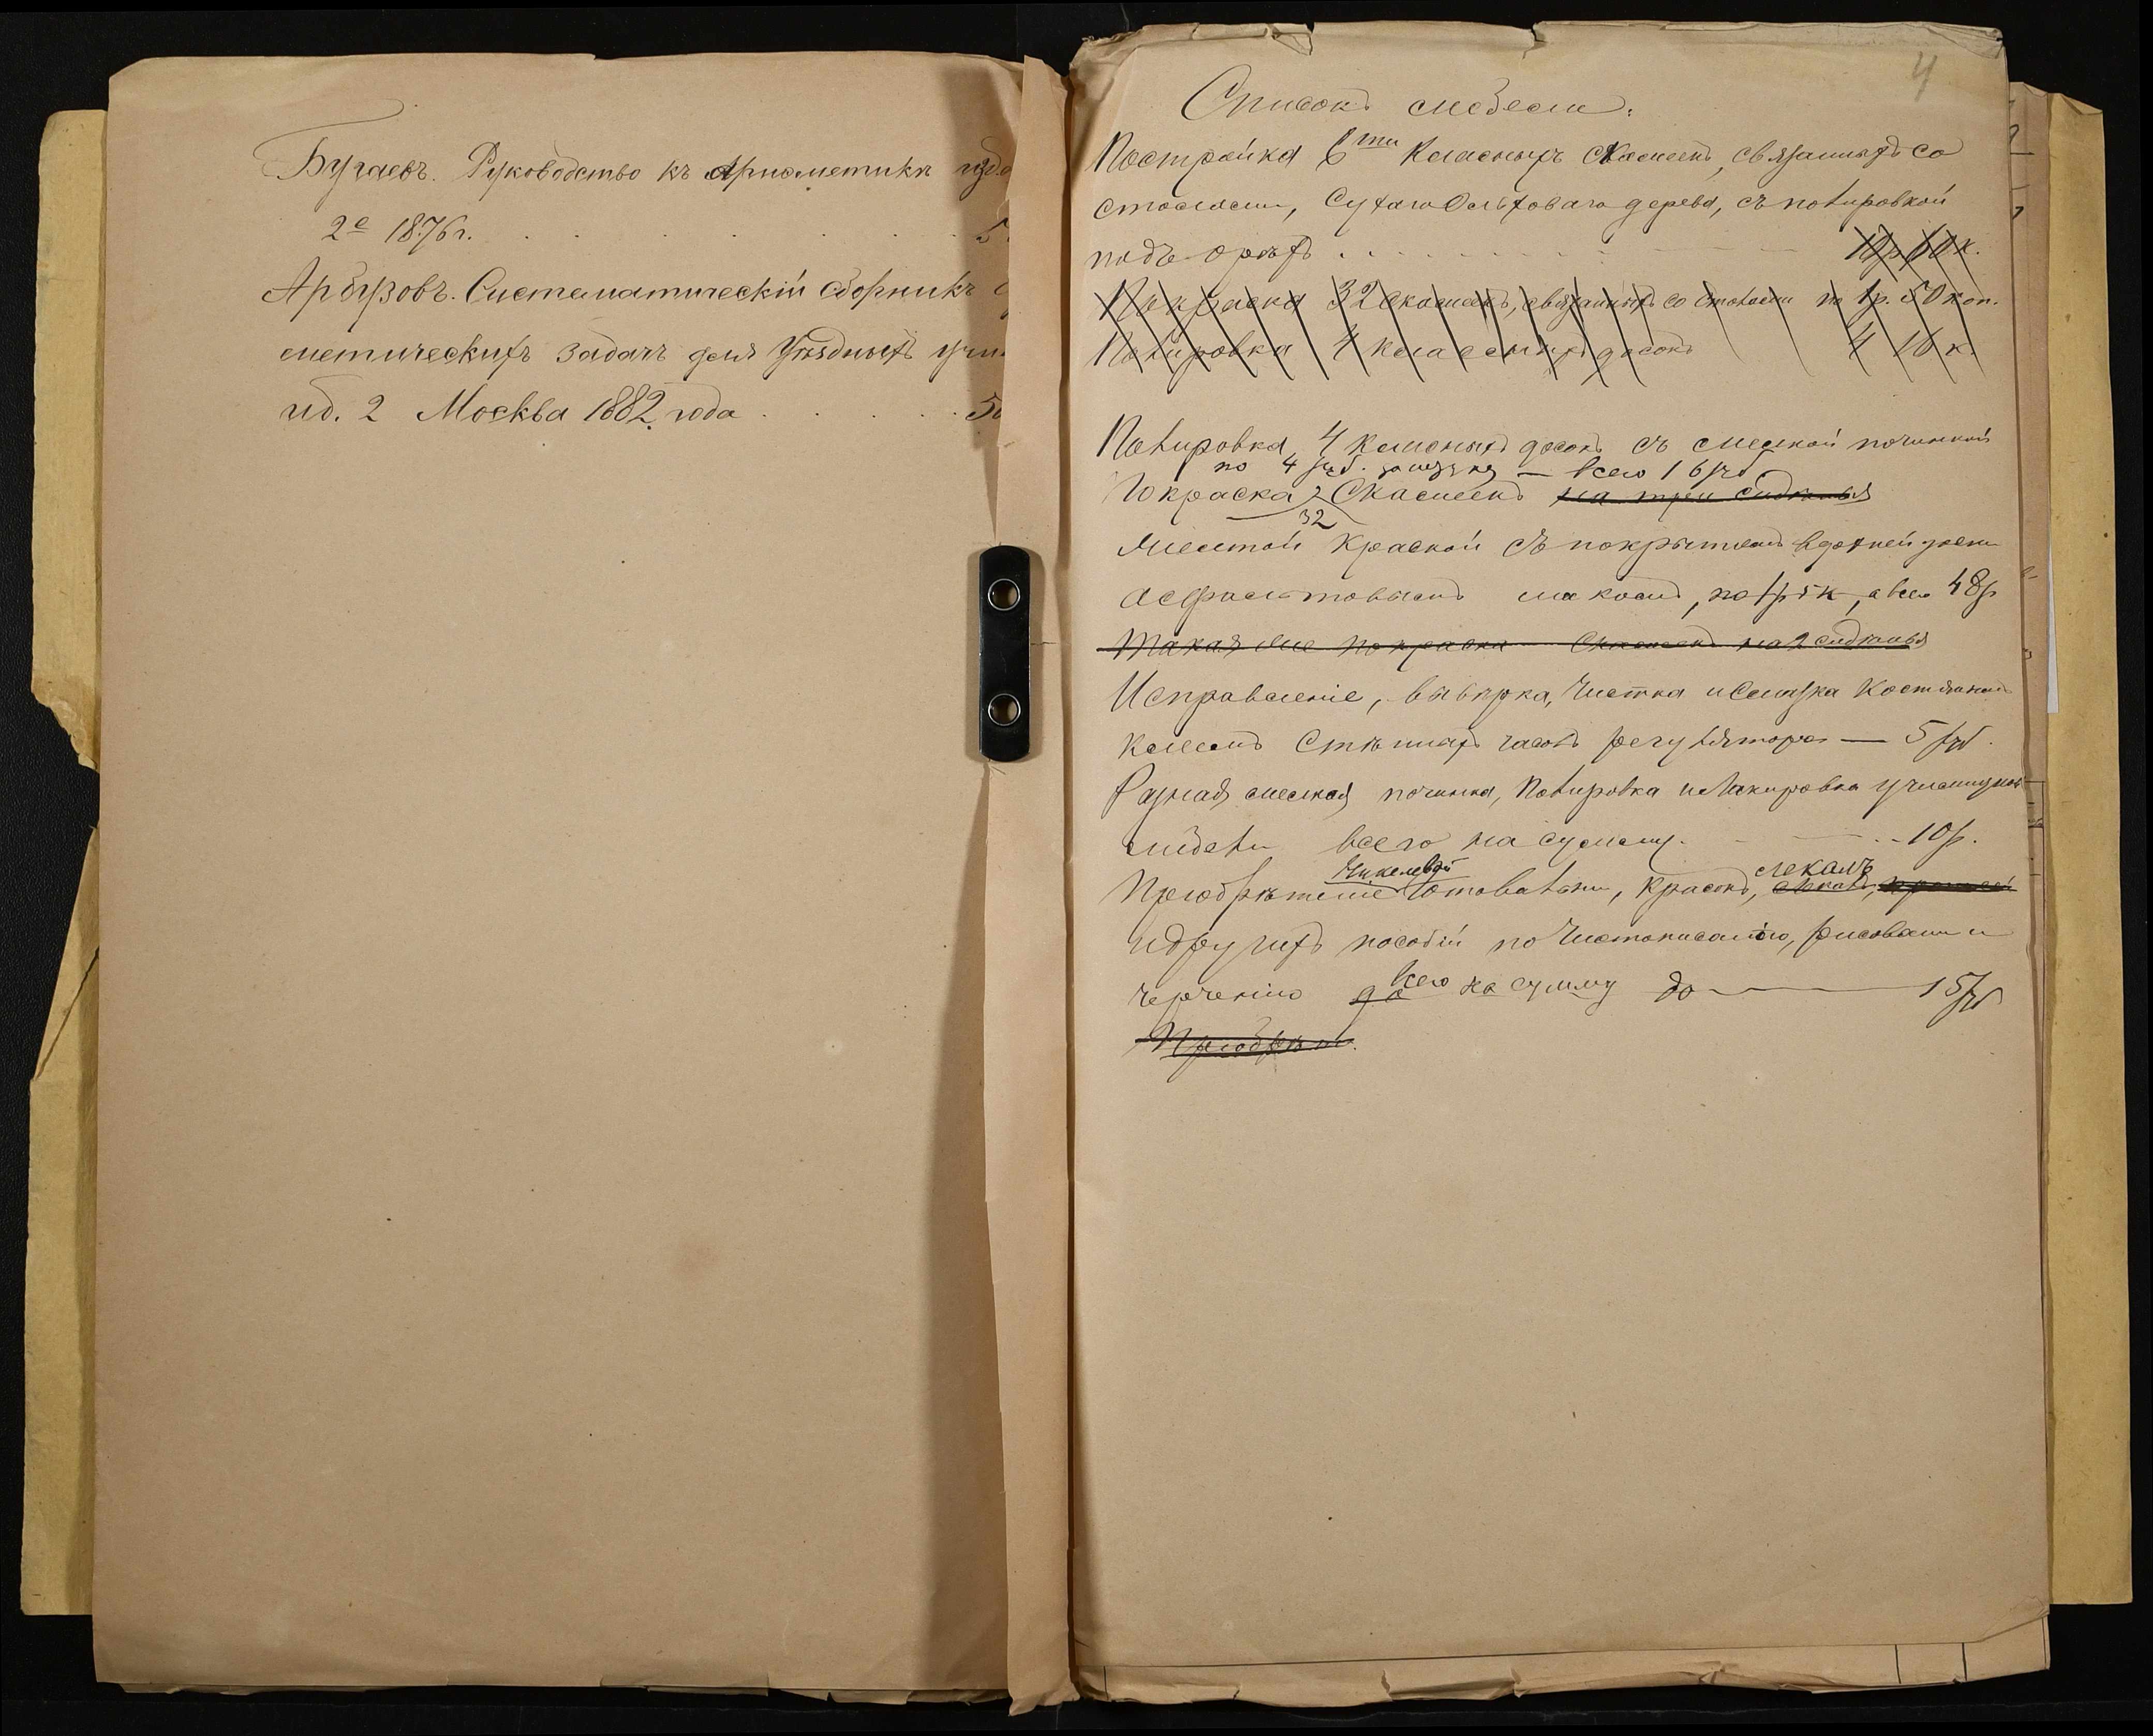 Бугаевъ. Руководство къ Ариѳметикѣ изд.
2е 1876 г. . . . . . . . 5
Арбузовъ. Систематическій сборникъ
метическихъ задачъ для Уѣздныхъ учи
изд. 2 Москва 1882 года . . . . . 50
4
Списокъ мебели:
Постройка 6ти Класныхъ Скамеекъ, связанныхъ со
столами, Сухого Ольховаго дерева, съ полировкой
подъ орѣхъ . . . . . . . . 10р 60 к.
Покраска 32 скамеекъ, связанныхъ со столами по 1р. 50 коп.
Полировка 4 классныхъ досокъ 4 16 к.
Полировка 4 Класныхъ досокъ съ мелкой починкой
по 4 руб. за штуку — всего 16 руб
Покраска Скамеекъ на три сидѣнья
32
Желтой Краской съ покрытіемъ верхней доски
асфальтовымъ лакомъ, по 1р 5 к, а всего 48р
Такая же покраска Скамеекъ на 2 сидѣнья
Исправленіе, вывѣрка, Чистка и Смазка Костянымъ
масломъ Стѣнныхъ часовъ регулятора — 5 руб.
Разная мелкая починка, Полировка и Лакировка училищной
мебели всего на сумму. — . . 10р.
Никелевой лекалъ
Пріобрѣтеніе Готовальни, Красокъ,
и другихъ пособій по Чистописанію, рисованію и
черченію до всего на сумму до — 15 руб
Пріобрѣтеніе